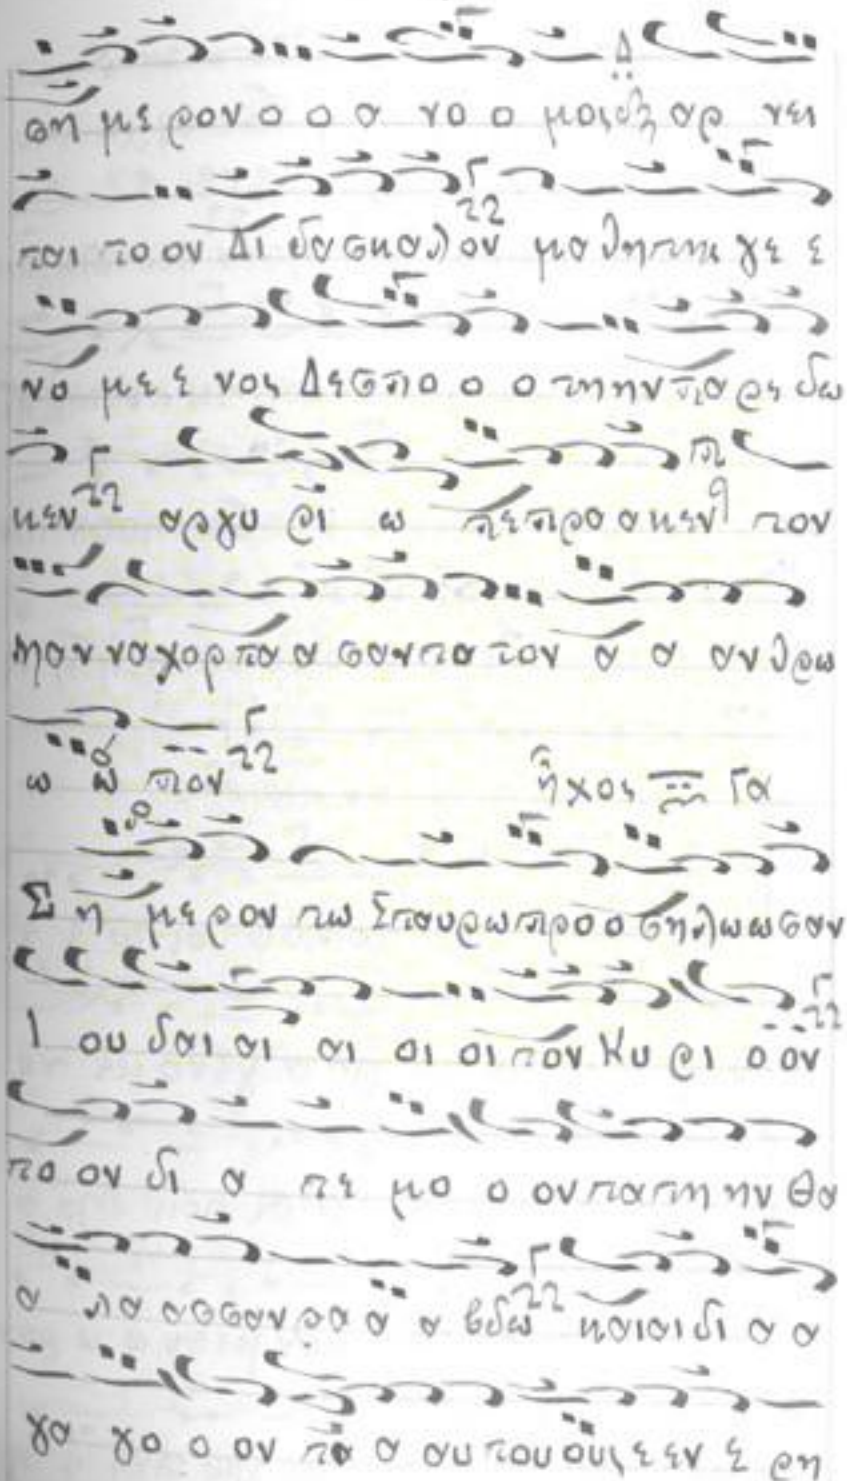 ση με ρον ο ο α νο ο μοις εξ αρ νει
ται το ον Δι δασκαλον μαθητης γε ε
νο με ε νος Δεσπο ο ο τηην παρε δω
κεν αργυ ρι ω πεπρα α κεν τον
μανναχορτα α σαντα τον α α ανθρω
ω ω πον ἦχος Γα
Σ η με ρον τω Σταυρω προ ο σηλωωσαν
Ι ου δαι αι αι οι οι τον Κυ ρι ο ον
το ον δι α τε μο ο ον τα την ην Θα
α λα α σσαν ρα α α βδω και αι δι α α
γα γο ο ον τα α αυ του ους ε εν ε ρη